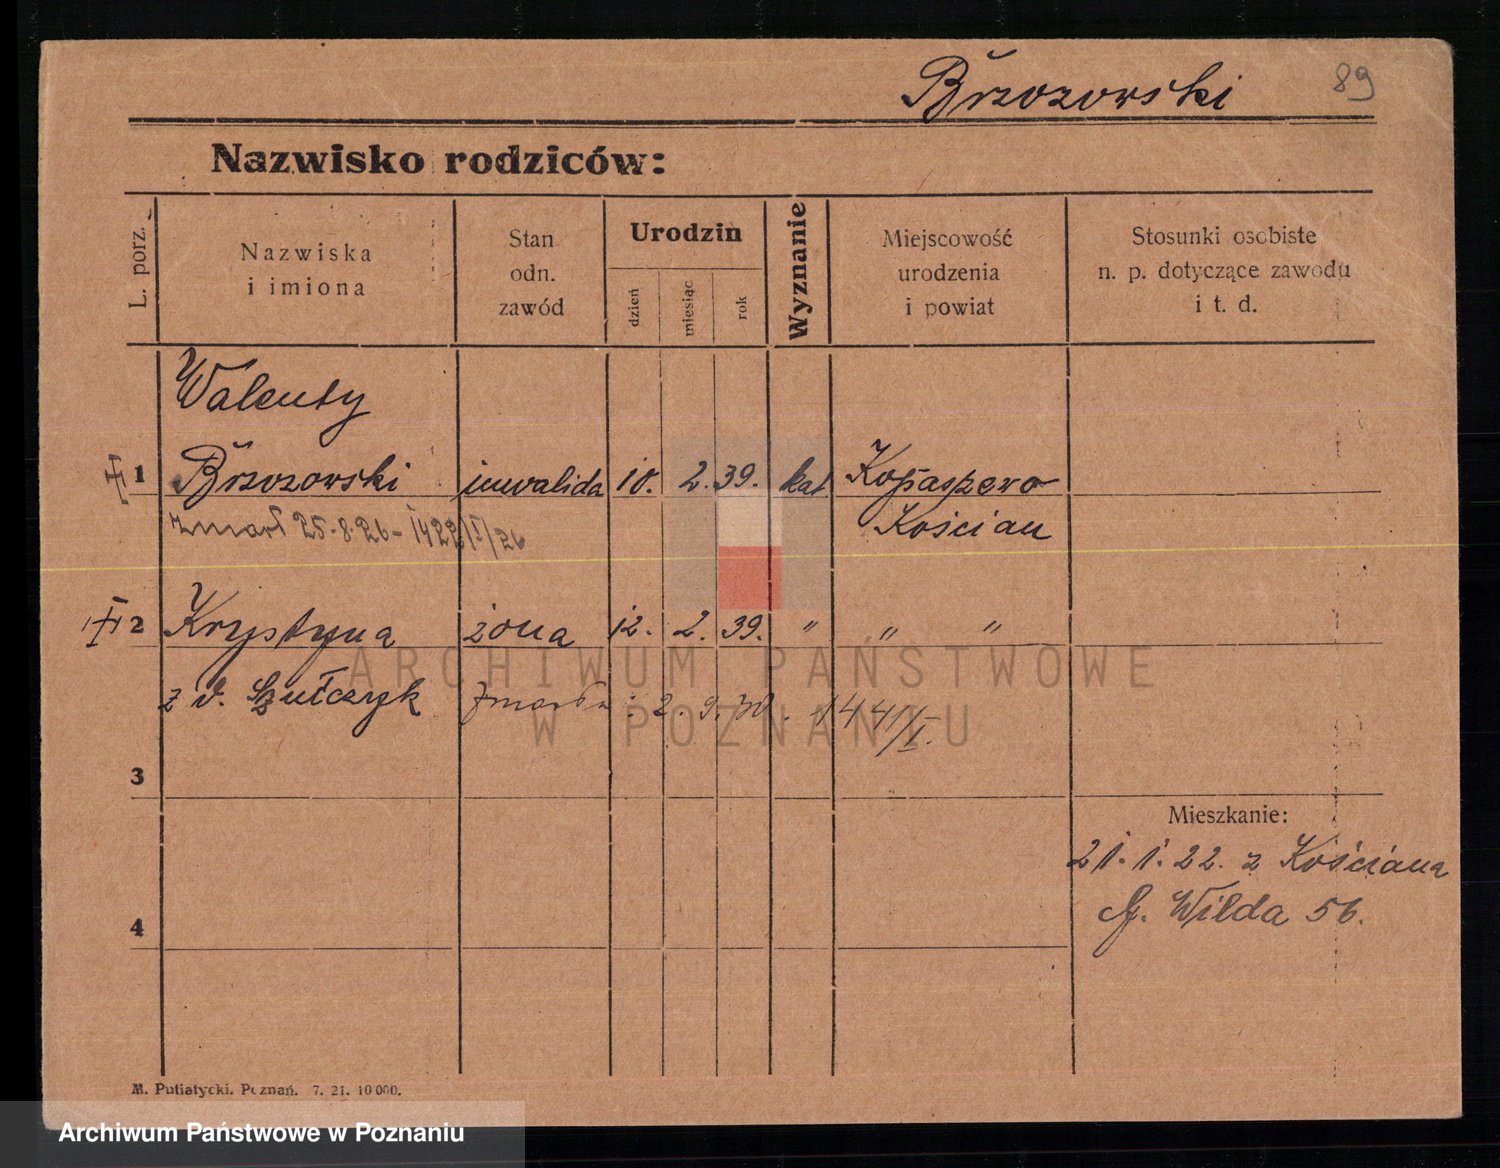 Brzozowski 89
Nazwisko rodziców:
L. porz.
Nazwiska
i imiona
Stan
odn.
zawód
Urodzin
dzień
miesiąc
rok
Wyznanie
Miejscowość
urodzenia
i powiat
Stosunki osobiste
n. p. dotyczące zawodu
i t. d.
Walenty
1 Brzozowski inwalida 10. 2. 39. kat
Kościan
zmarł 25.8.26 - 1422/I/26
2 Krystyna żona 12. 2. 39. " " "
z d. Szułczyk zmarła 2.9.30. 1441/I.
3
Mieszkanie:
21. 1. 22. z Kościana
G. Wilda 56.
4
M. Putiatycki. Poznań. 7. 21. 10000.
ARCHIWUM PAŃSTWOWE
W POZNANIU
Archiwum Państwowe w Poznaniu